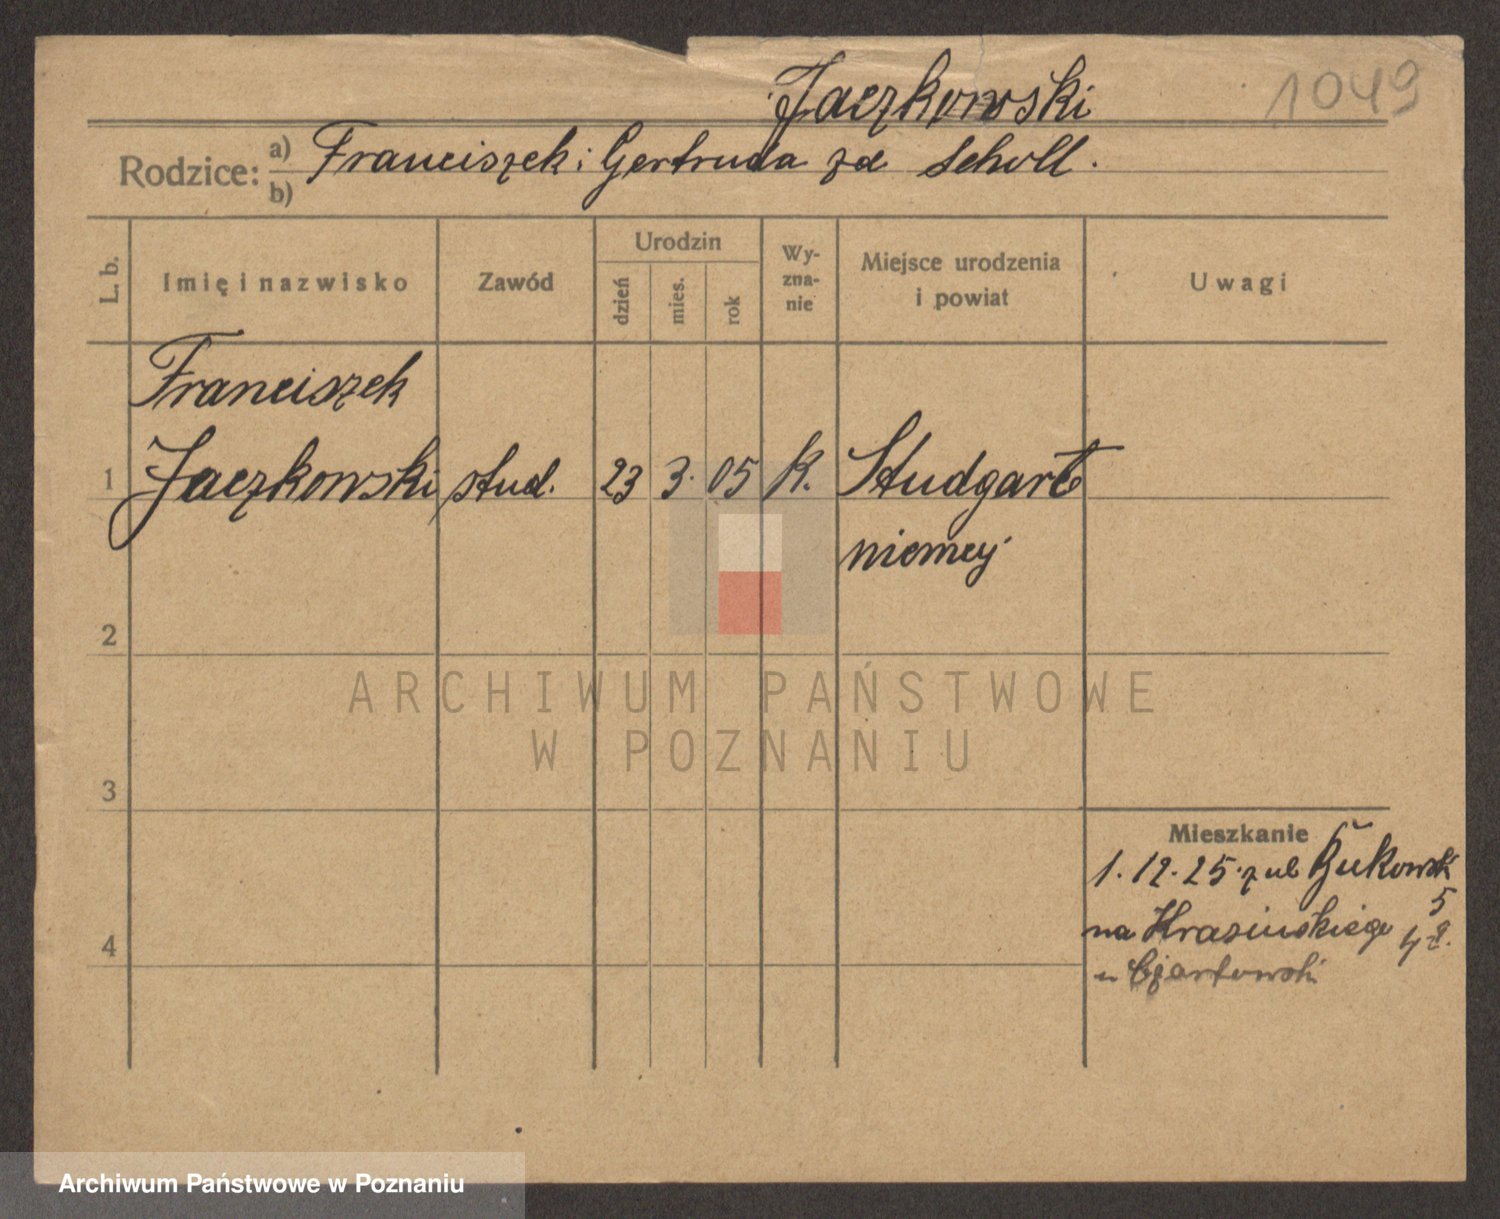 Jaczkowski
1049
Rodzice: a) Franciszek i Gertruda zd Scholl.
b)
L. b.
Imię i nazwisko
Zawód
Urodzin
dzień
mies.
rok
Wy-
zna-
nie
Miejsce urodzenia
i powiat
Uwagi
Franciszek
1 Jaczkowski stud. 23 3. 05 k. Studgart
niemcy
2
ARCHIWUM PAŃSTWOWE
W POZNANIU
3
Mieszkanie
1. 12. 25. z ul Bukowsk
5
na Krasińskiego
4
u Czartowski
Archiwum Państwowe w Poznaniu